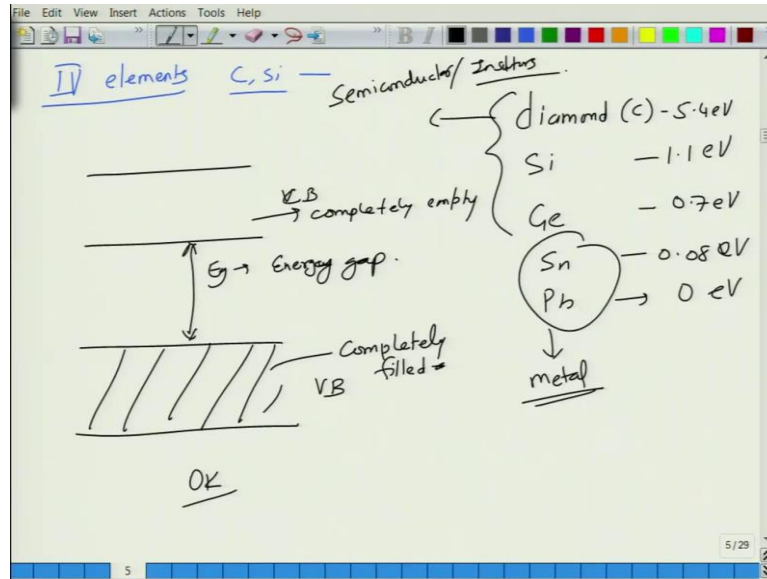 File Edit View Insert Actions Tools Help
IV elements C, Si — Semiconductor/
diamond (C) - 5.4eV
Si - 1.1 eV
Ge - 0.7eV
Sn - 0.08 eV
Pb → 0 eV
metal
CB
completely empty
Eg → Energy gap.
Completely
filled
VB
OK
5/29
5